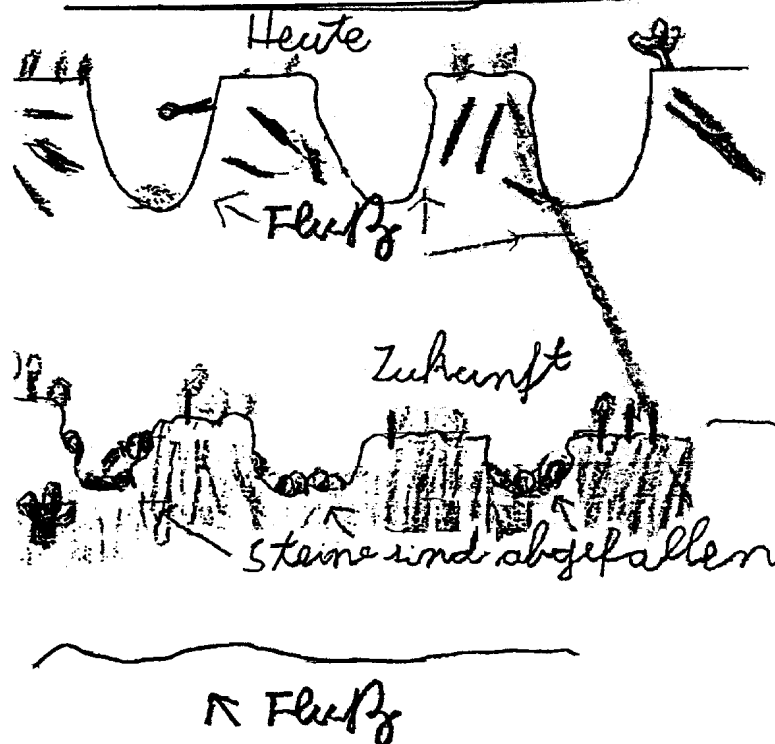 Heute
Fluß
Zukunft
Steine sind abgefallen
Fluß